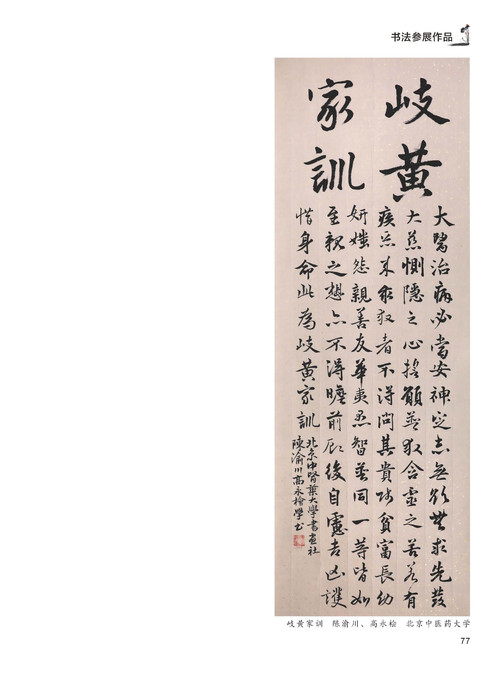 书法参展作品
岐黄
家訓
大醫治病必當安神定志無欲無求先發
大慈惻隱之心誓願普救含靈之苦若有
疾厄来求救者不得問其貴賤貧富長幼
妍媸怨親善友華夷愚智普同一等皆如
至親之想亦不得瞻前顧後自慮吉凶護
惜身命此為岐黄家訓
北京中醫藥大學書画社
陳渝川高永檜學书
岐黄家训 陈渝川、高永桧 北京中医药大学
77